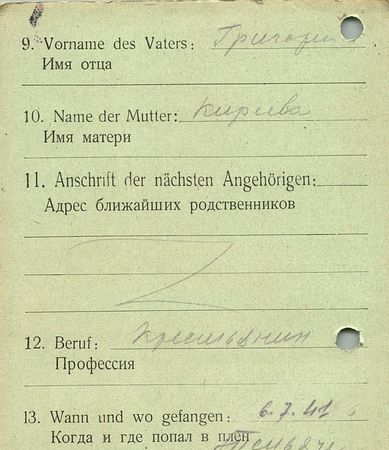 9. Vorname des Vaters: Григорий
Имя отца
10. Name der Mutter: Киреева
Имя матери
11. Anschrift der nächsten Angehörigen:
Адрес ближайших родственников
12. Beruf: крестьянин
Профессия
13. Wann und wo gefangen: 6.7.41
Когда и где попал в плен